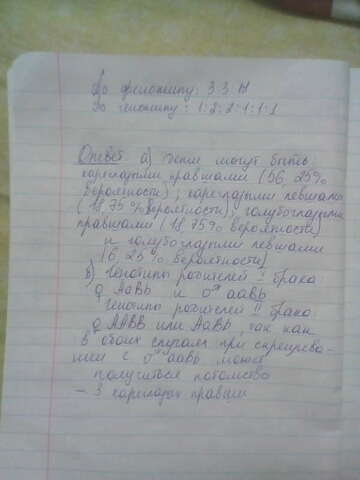 По фенотипу: 3:3:1:1
По генотипу: 1:2:2:1:1:1
Ответ: а) дети могут быть:
кареглазыми правшами (56,25%
вероятности); кареглазыми левшами
(18,75% вероятности); голубоглазыми
правшами (18,75% вероятности)
и голубоглазыми левшами
(6,25% вероятности)
в) Генотипы родителей I брака
♀ АаВb и ♂ ааВb
Генотипы родителей II брака
♀ ААВВ или АаВb, так как
в обоих случаях при скрещива-
нии с ♂ ааВb может
получиться потомство
– 3 кареглазых правши